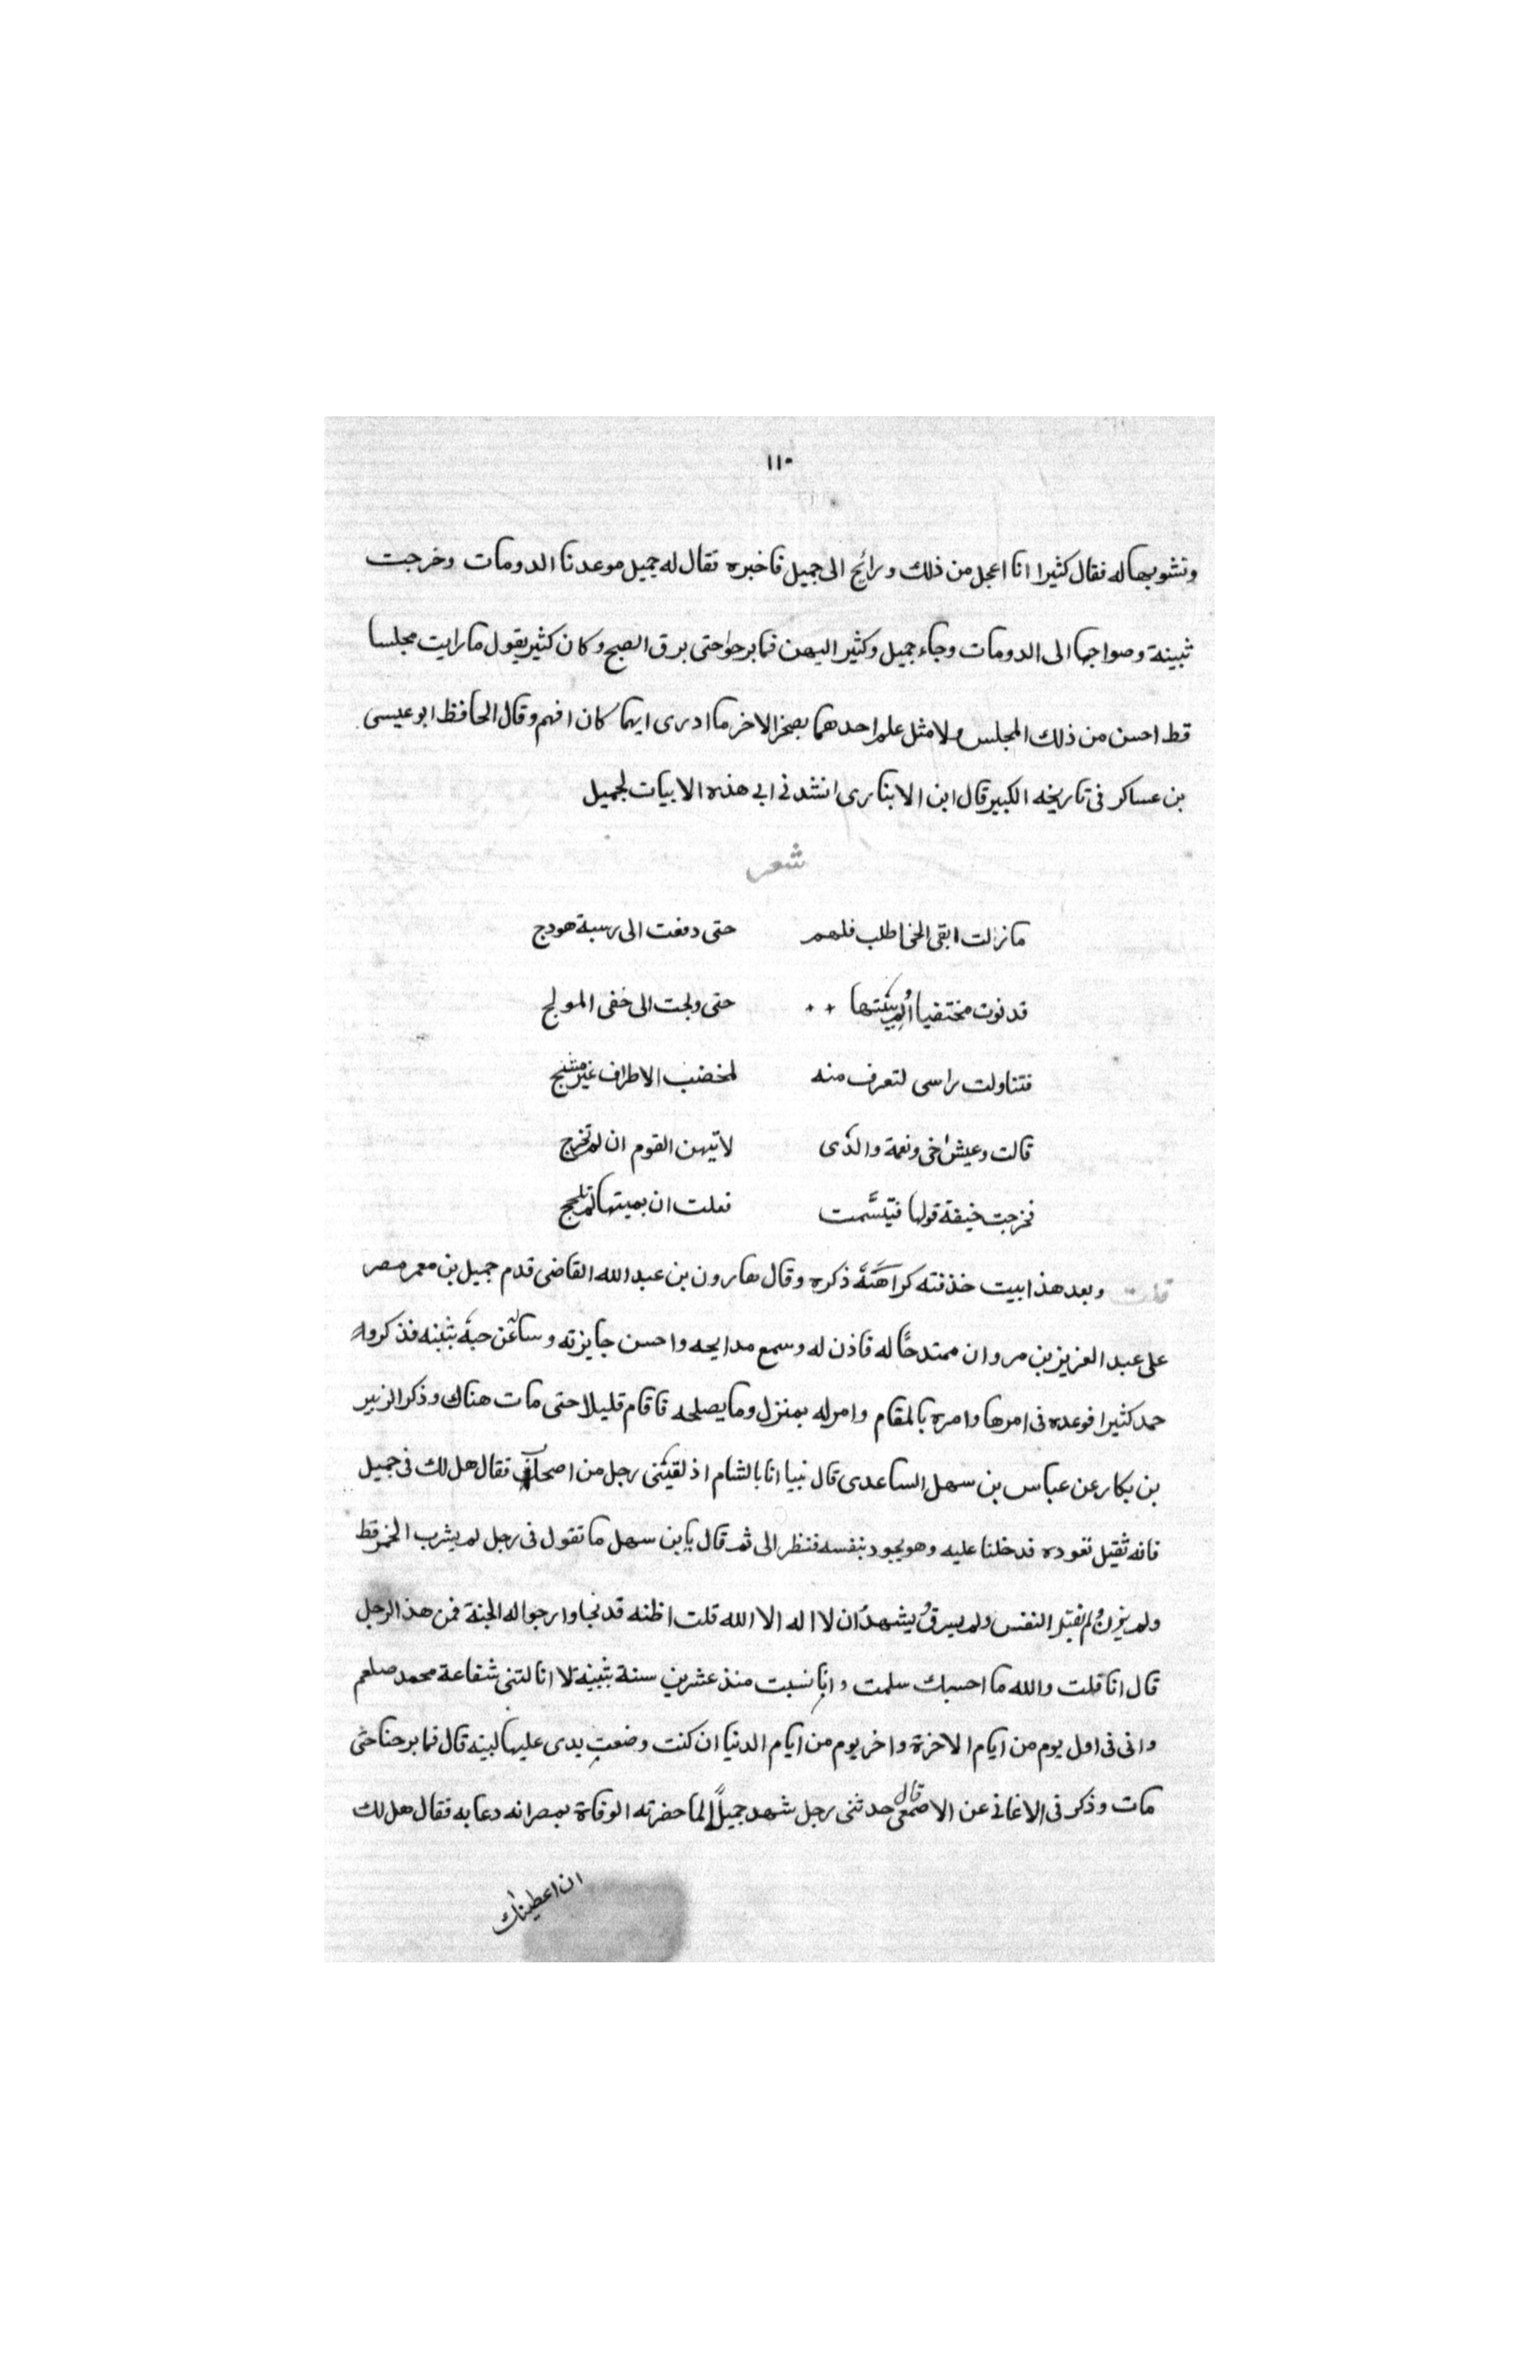 ١١٠
ونشويها له فقال كثيرا انا اعجل من ذلك ورائح الى جميل فاخبره فقال له جميل موعدنا الدومات وخرجت
ثبينة وصواجها الى الدومات وجاء جميل وكثير اليهن فما برحوا حتى برق الصبح وكان كثير يقول ما رايت مجلسا
قط احسن من ذلك المجلس ولا مثل علم احدهما بضمير الاخر ما ادرى ايهما كان افهم وقال الحافظ ابو عيسى
بن عساكر فى تاريخه الكبير قال ابن الابنارى انشدنى ابى هذه الابيات لجميل
شعر
ما زلت ابقى الخى اطلب فلهم حتى دفعت الى رسبة هودج
قدنوت مختفيا ألم ببيتها حتى ولجت الى خفى المولج
فتناولت راسى لتعرف منه لمخضب الاطراف غير مشبج
قالت وعيش اخى ونعمة والدى لانبهن القوم ان لم تخرج
فخرجت خيفة قولها فتبسَّمت فعلت ان يميتها لم تلجج
قلت وبعد هذا بيت حذفته كراهَتَه ذكره وقال هارون بن عبد الله القاضى قدم جميل بن معمر مصر
على عبد العزيز بن مروان ممتدحًا له فاذن له وسمع مدايحه واحسن جايزته وساله عن حبه بثينه فذكر وا
حمد كثيرا فوعده فى امرها وامره بالمقام وامر له بمنزل وما يصلحه فاقام قليلا حتى مات هناك وذكر الزبير
بن بكار عن عباس بن سهل الساعدى قال نبيا انا بالشام اذ لقيتنى رجل من اصحابى فقال هل لك فى جميل
فانه ثقيل نعوده فدخلنا عليه وهو يجود بنفسه فنظر الى ثم قال يا بن سهل ما تقول فى رجل لم يشرب الخمر قط
ولم يزن ولم يقتل النفس ولم يسرق يشهد ان لا اله الا الله قلت اظنه قد نجا وارجو اله الجنة فمن هذا الرجل
قال انا قلت والله ما احسبك سلمت وانا نسبت منذ عشرين سنة بثينة لا انالتنى شفاعة محمد صلعم
وانى فى اول يوم من ايام الاخرة واخر يوم من ايام الدنيا ان كنت وضعت يدى عليها لبيته قال فما برحنا حتى
مات وذكر فى الاغانى عن الاصمعى قال حدثنى رجل شهد جميلًا لما حضرته الوفاة بمصر انه دعا به فقال هل لك
ان اعطيك